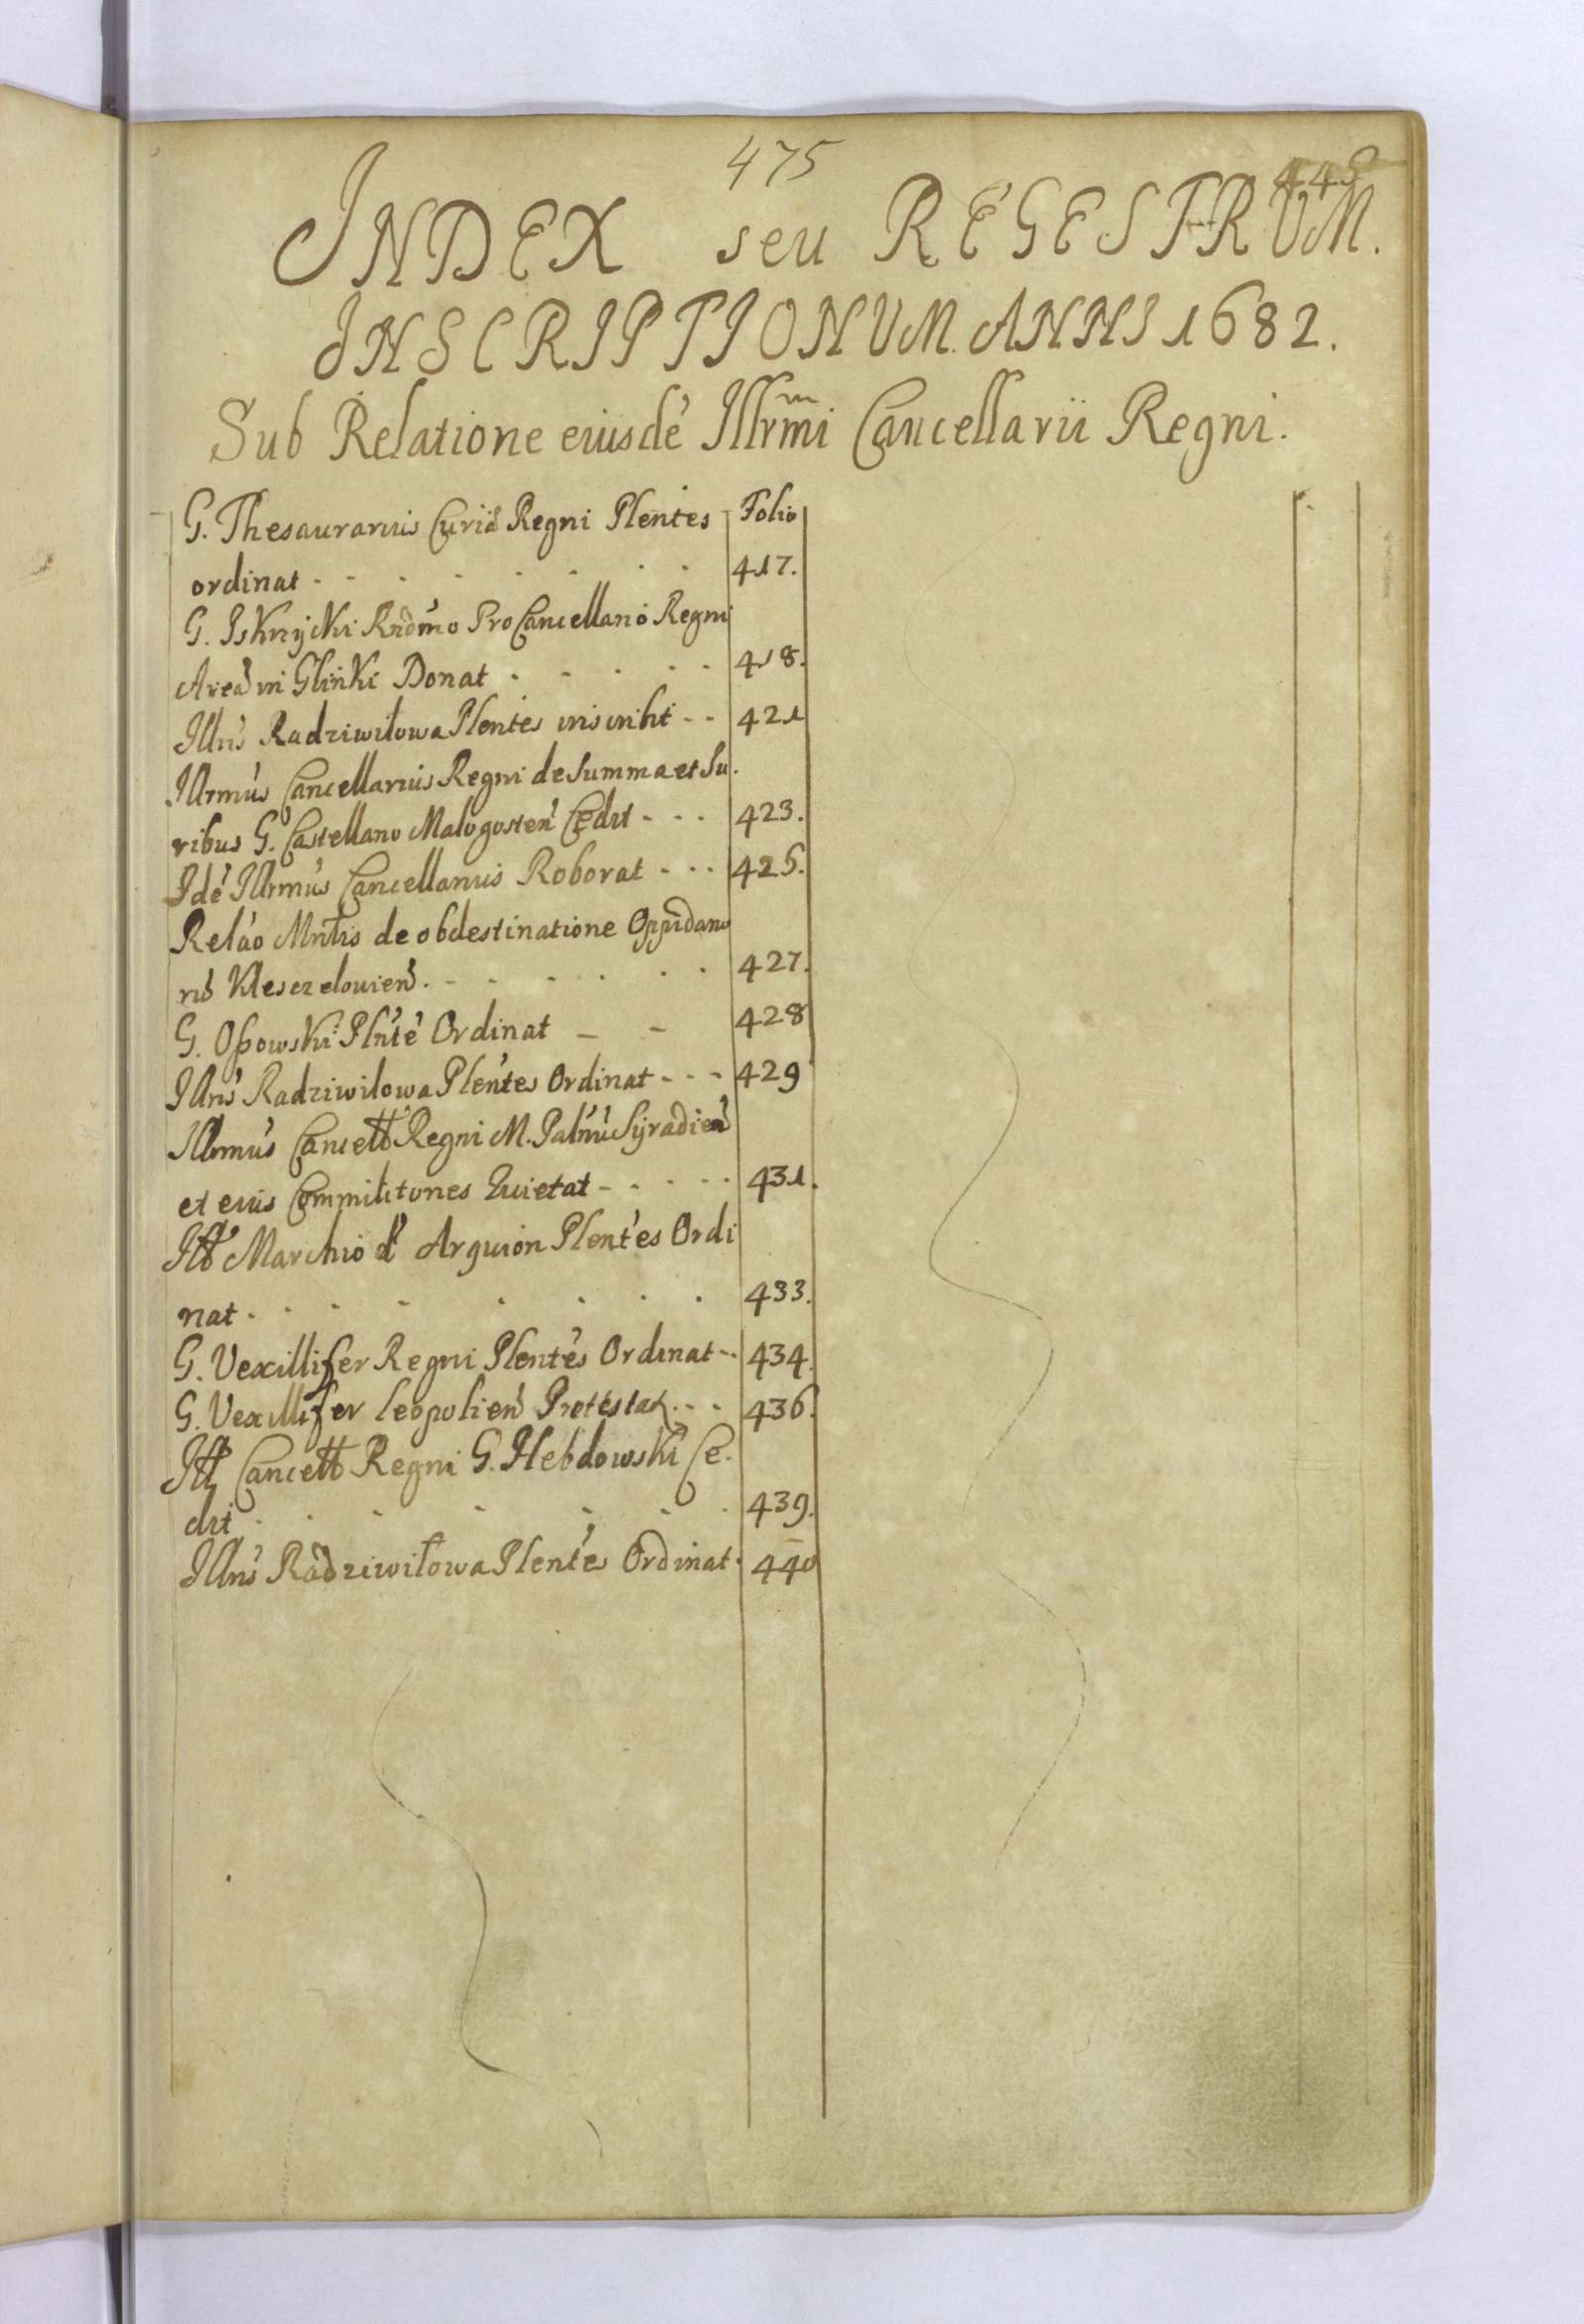 475
INDEX seu REGESTRUM.
INSCRIPTIONUM ANNI 1682.
Sub Relatione eiusdé Illrmi Cancellarii Regni.
G. Thesaurarius Curiæ Regni Plentes Folio
ordinat - - - - - - - - 417.
G. Iskrzycki Rndmo ProCancellario Regni
Areã in Glinki Donat - - - - - 418.
Illris Radziwiłowa Plentes inscribit - - 421
Illrmus Cancellarius Regni de Summa et Iu.
ribus G. Castellano Malogosten Cedit - - - 423.
Idé Illrmus Cancellarius Roborat - - - 425.
Relao Mntris de obdestinatione Oppidano
rũ Kleszczelovien. - - - - - - 427.
G. Oßowski Plnté Ordinat - - 428
Illris Radziwilowa Plentes Ordinat - - - 429
Illrmus Cancell Regni M. Palnú Syradien
et eius Commilitones Quietat - - - - - 431.
Ill Marchio d' Arquion Plentes Ordi
nat - - - - - - - - 433.
G. Vexillifer Regni Plentes Ordinat - - 434.
G. Vexillifer Leopolien Protestat - - - 436.
Ill Cancell Regni G. Hebdowski Ce.
dit - - - - - - 439.
Illris Radziwiłowa Plentes Ordinat - 440